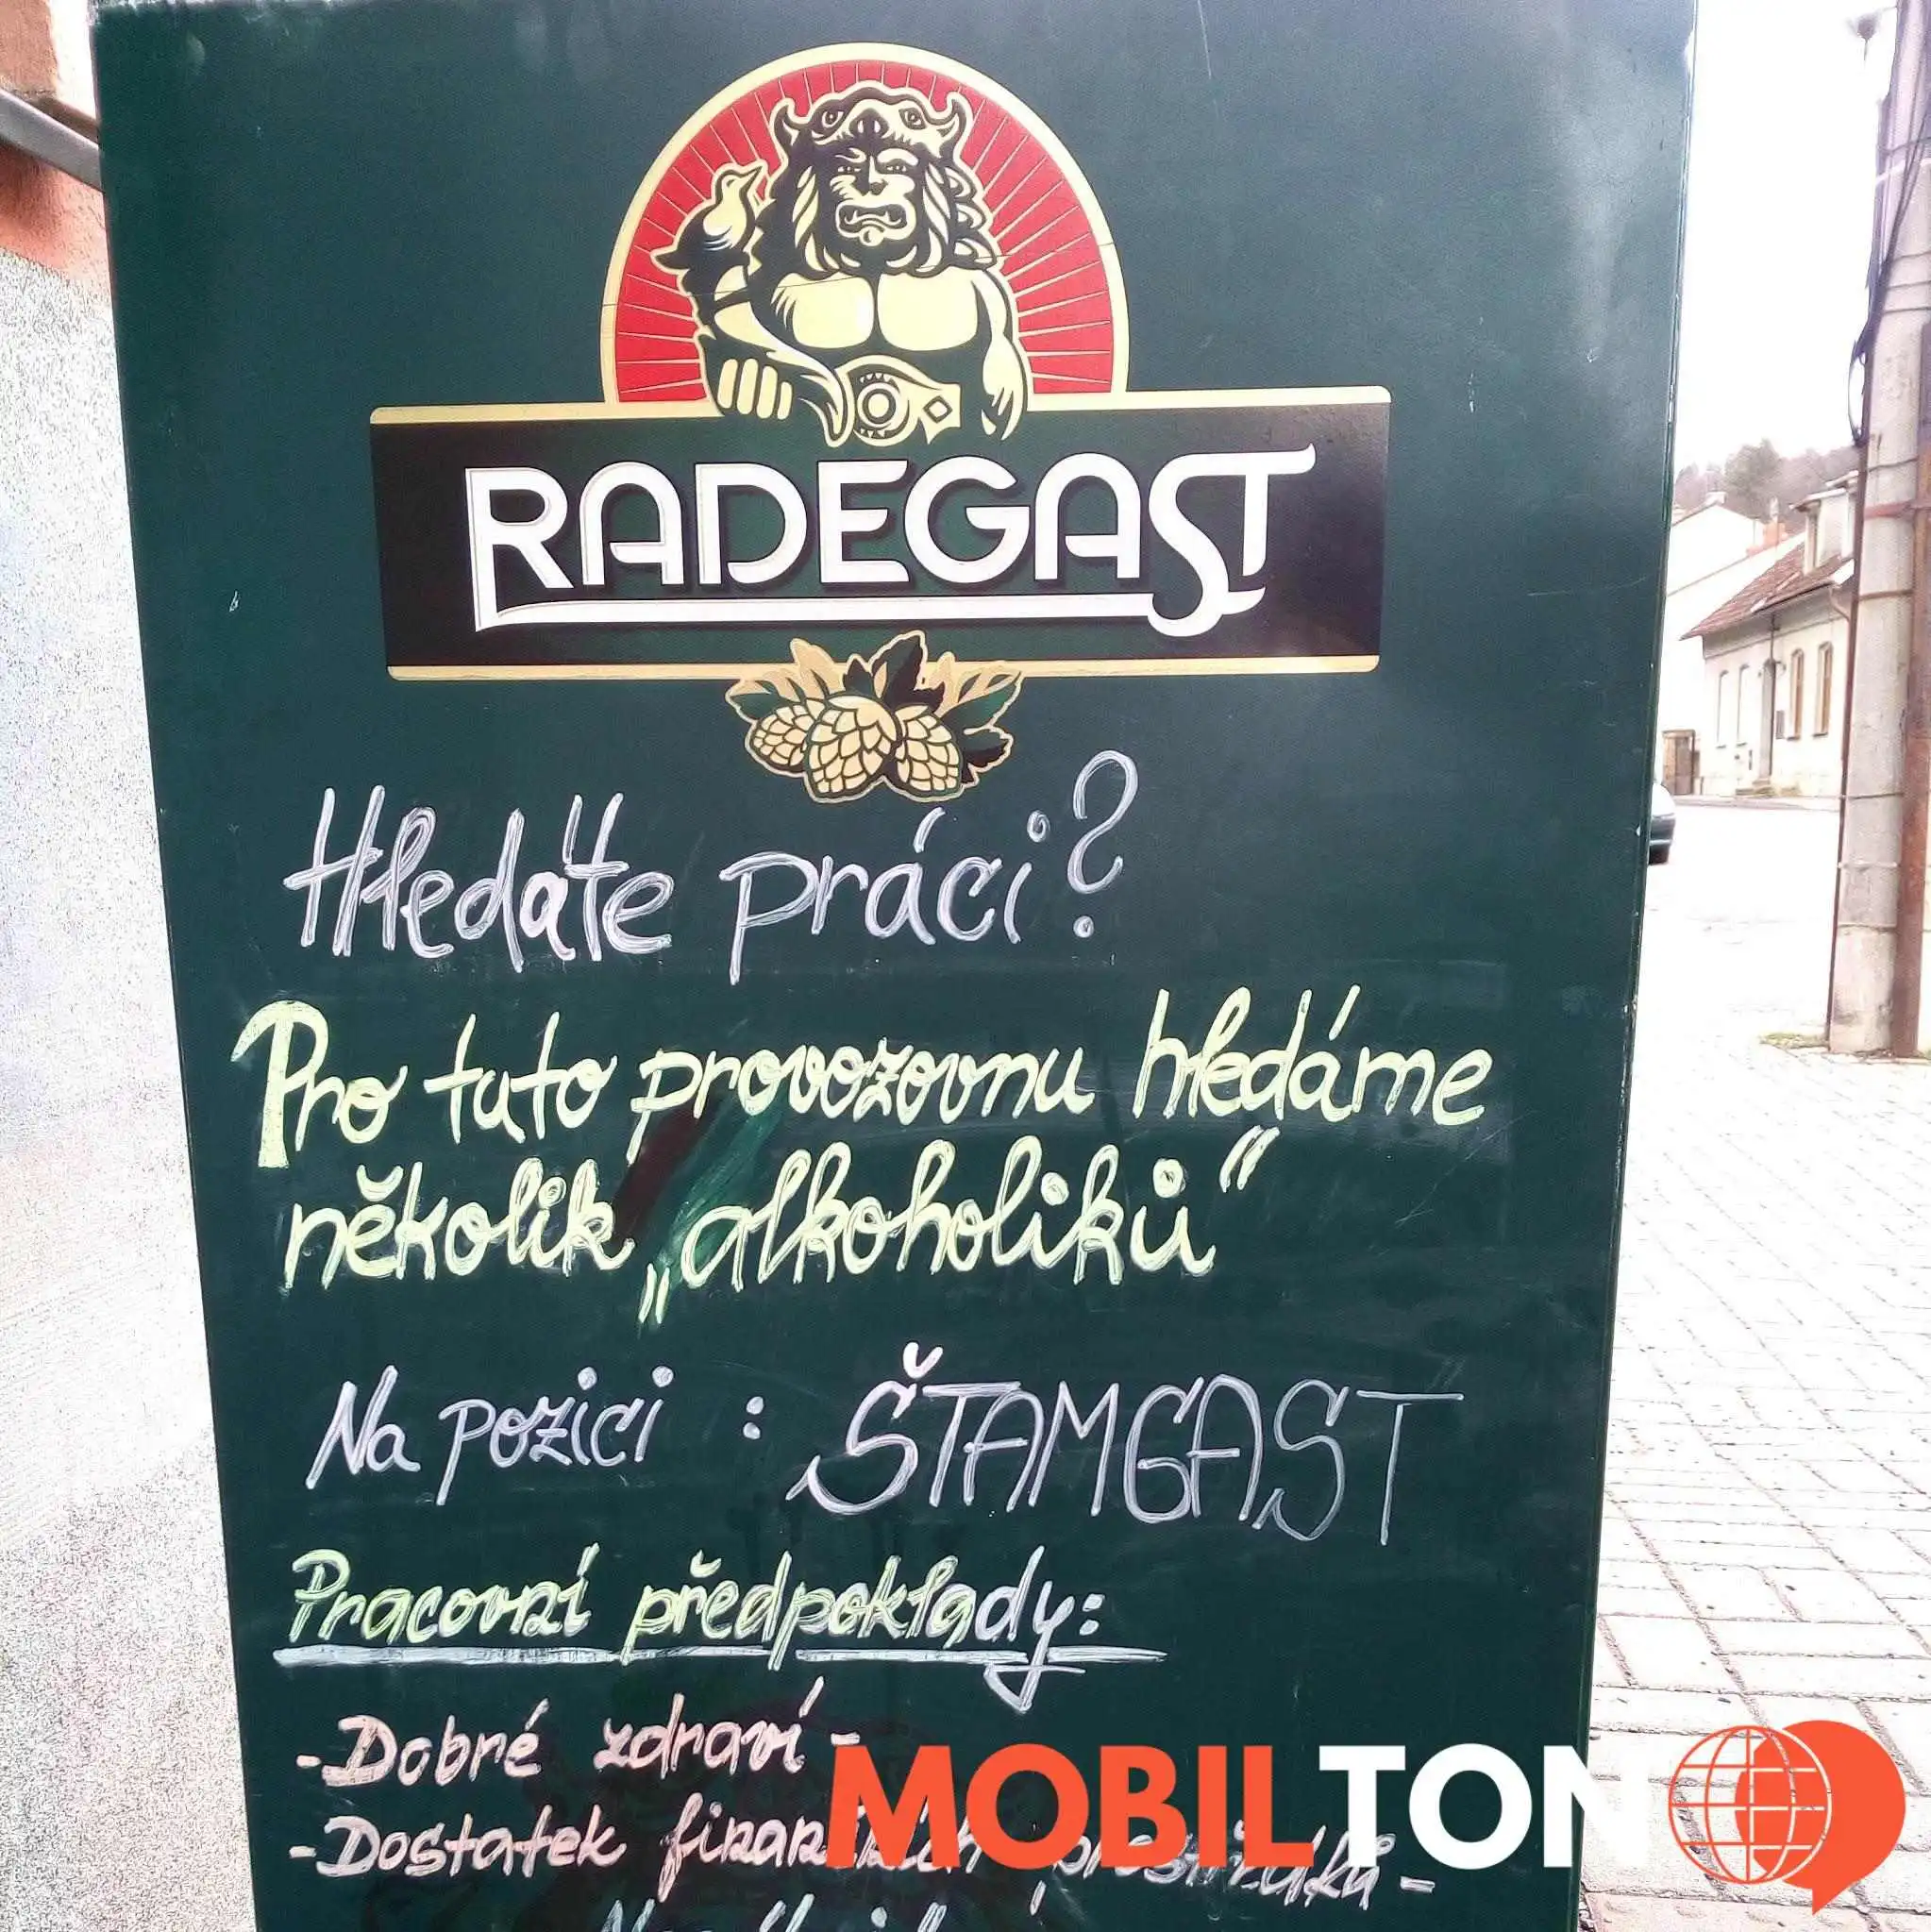 RADEGAST
Hledáte práci?
Pro tuto provozovnu hledáme
několik „alkoholiků“
Na pozici : ŠTAMGAST
Pracovní předpoklady:
-Dobré zdraví-
-Dostatek finančních prostředků-
MOBILTON